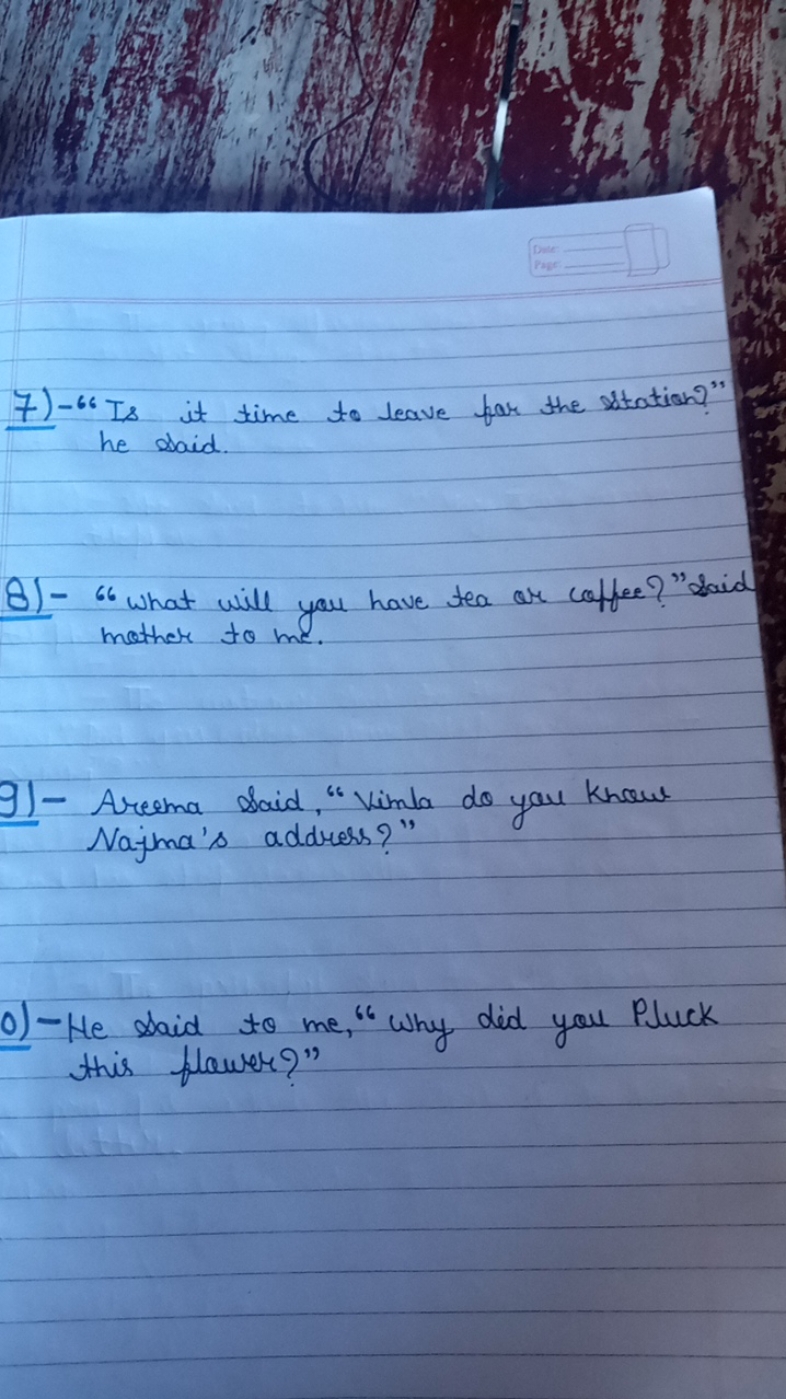 Date:
Page:
7)-“Is it time to leave for the station?”
he said.
8)- “what will you have tea or coffee?” said
mother to me.
9)- Areema said, “Vimla do you know
Najma's address?”
0)-He said to me, “Why did you Pluck
this flower?”